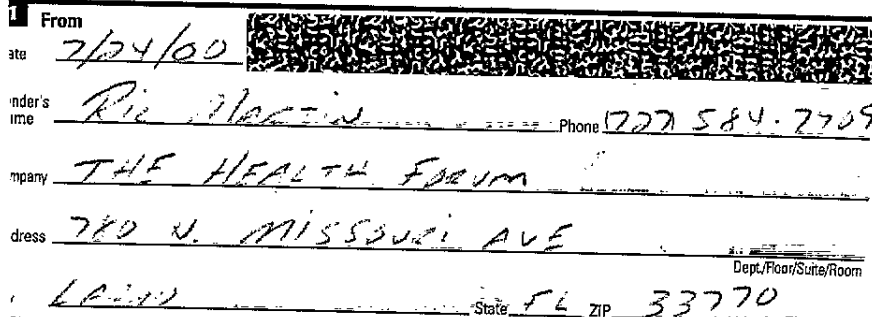 1 From
ate 7/24/00
nder's
me Ric Martin Phone (727) 584-7709
mpany THE HEALTH FORUM
dress 780 N. MISSOURI AVE
Dept./Floor/Suite/Room
State FL ZIP 33770